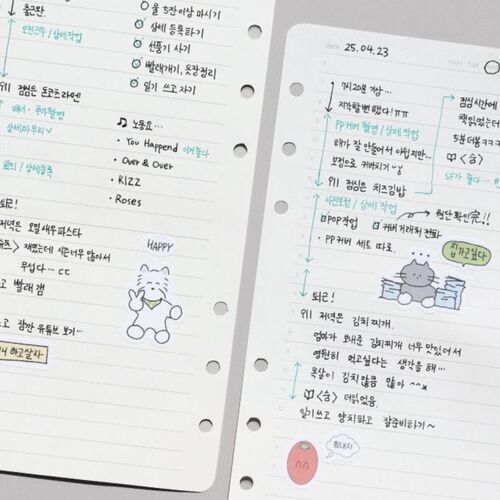 물 5잔 이상 마시기
출근완.
상세 등록하기
오전근무 / 상세작업
선풍기 사기
빨래개기, 옷장정리
일기 쓰고 자기
점심은 돈코츠라멘
노동요...
· You Happend
· Over & Over
· RIZZ
· Roses
상세마무리
퇴근!
저녁은
HAPPY
무섭다... ㄷㄷ
고 빨래 갬
잠깐 유튜브 보기...
하고잘자
date 25.04.23
7시20분 기상...
지각할뻔했다!ㅠㅠ
PP커버 촬영 / 상세작업
해가 잘 안들어서 아쉽지만...
보정으로 커버치기
점심은 치즈김밥
사진보정 / 상세 작업
POP작업
커버 거래처 전화
원단 확인完!!
· PP커버 세트 따로.
점심시간에
책읽었는데
5분 더볼ㅋㅋ
<숨>
SF가 좋다...
집가고싶다
퇴근!
저녁은 김치찌개.
엄마가 보내준 김치찌개 너무 맛있어서
영원히 먹고싶다는 생각을 해...
목살이 김치만큼 많아 ^^*
<숨> 더읽었음
일기쓰고 양치하고 잘준비하기~
힘내자